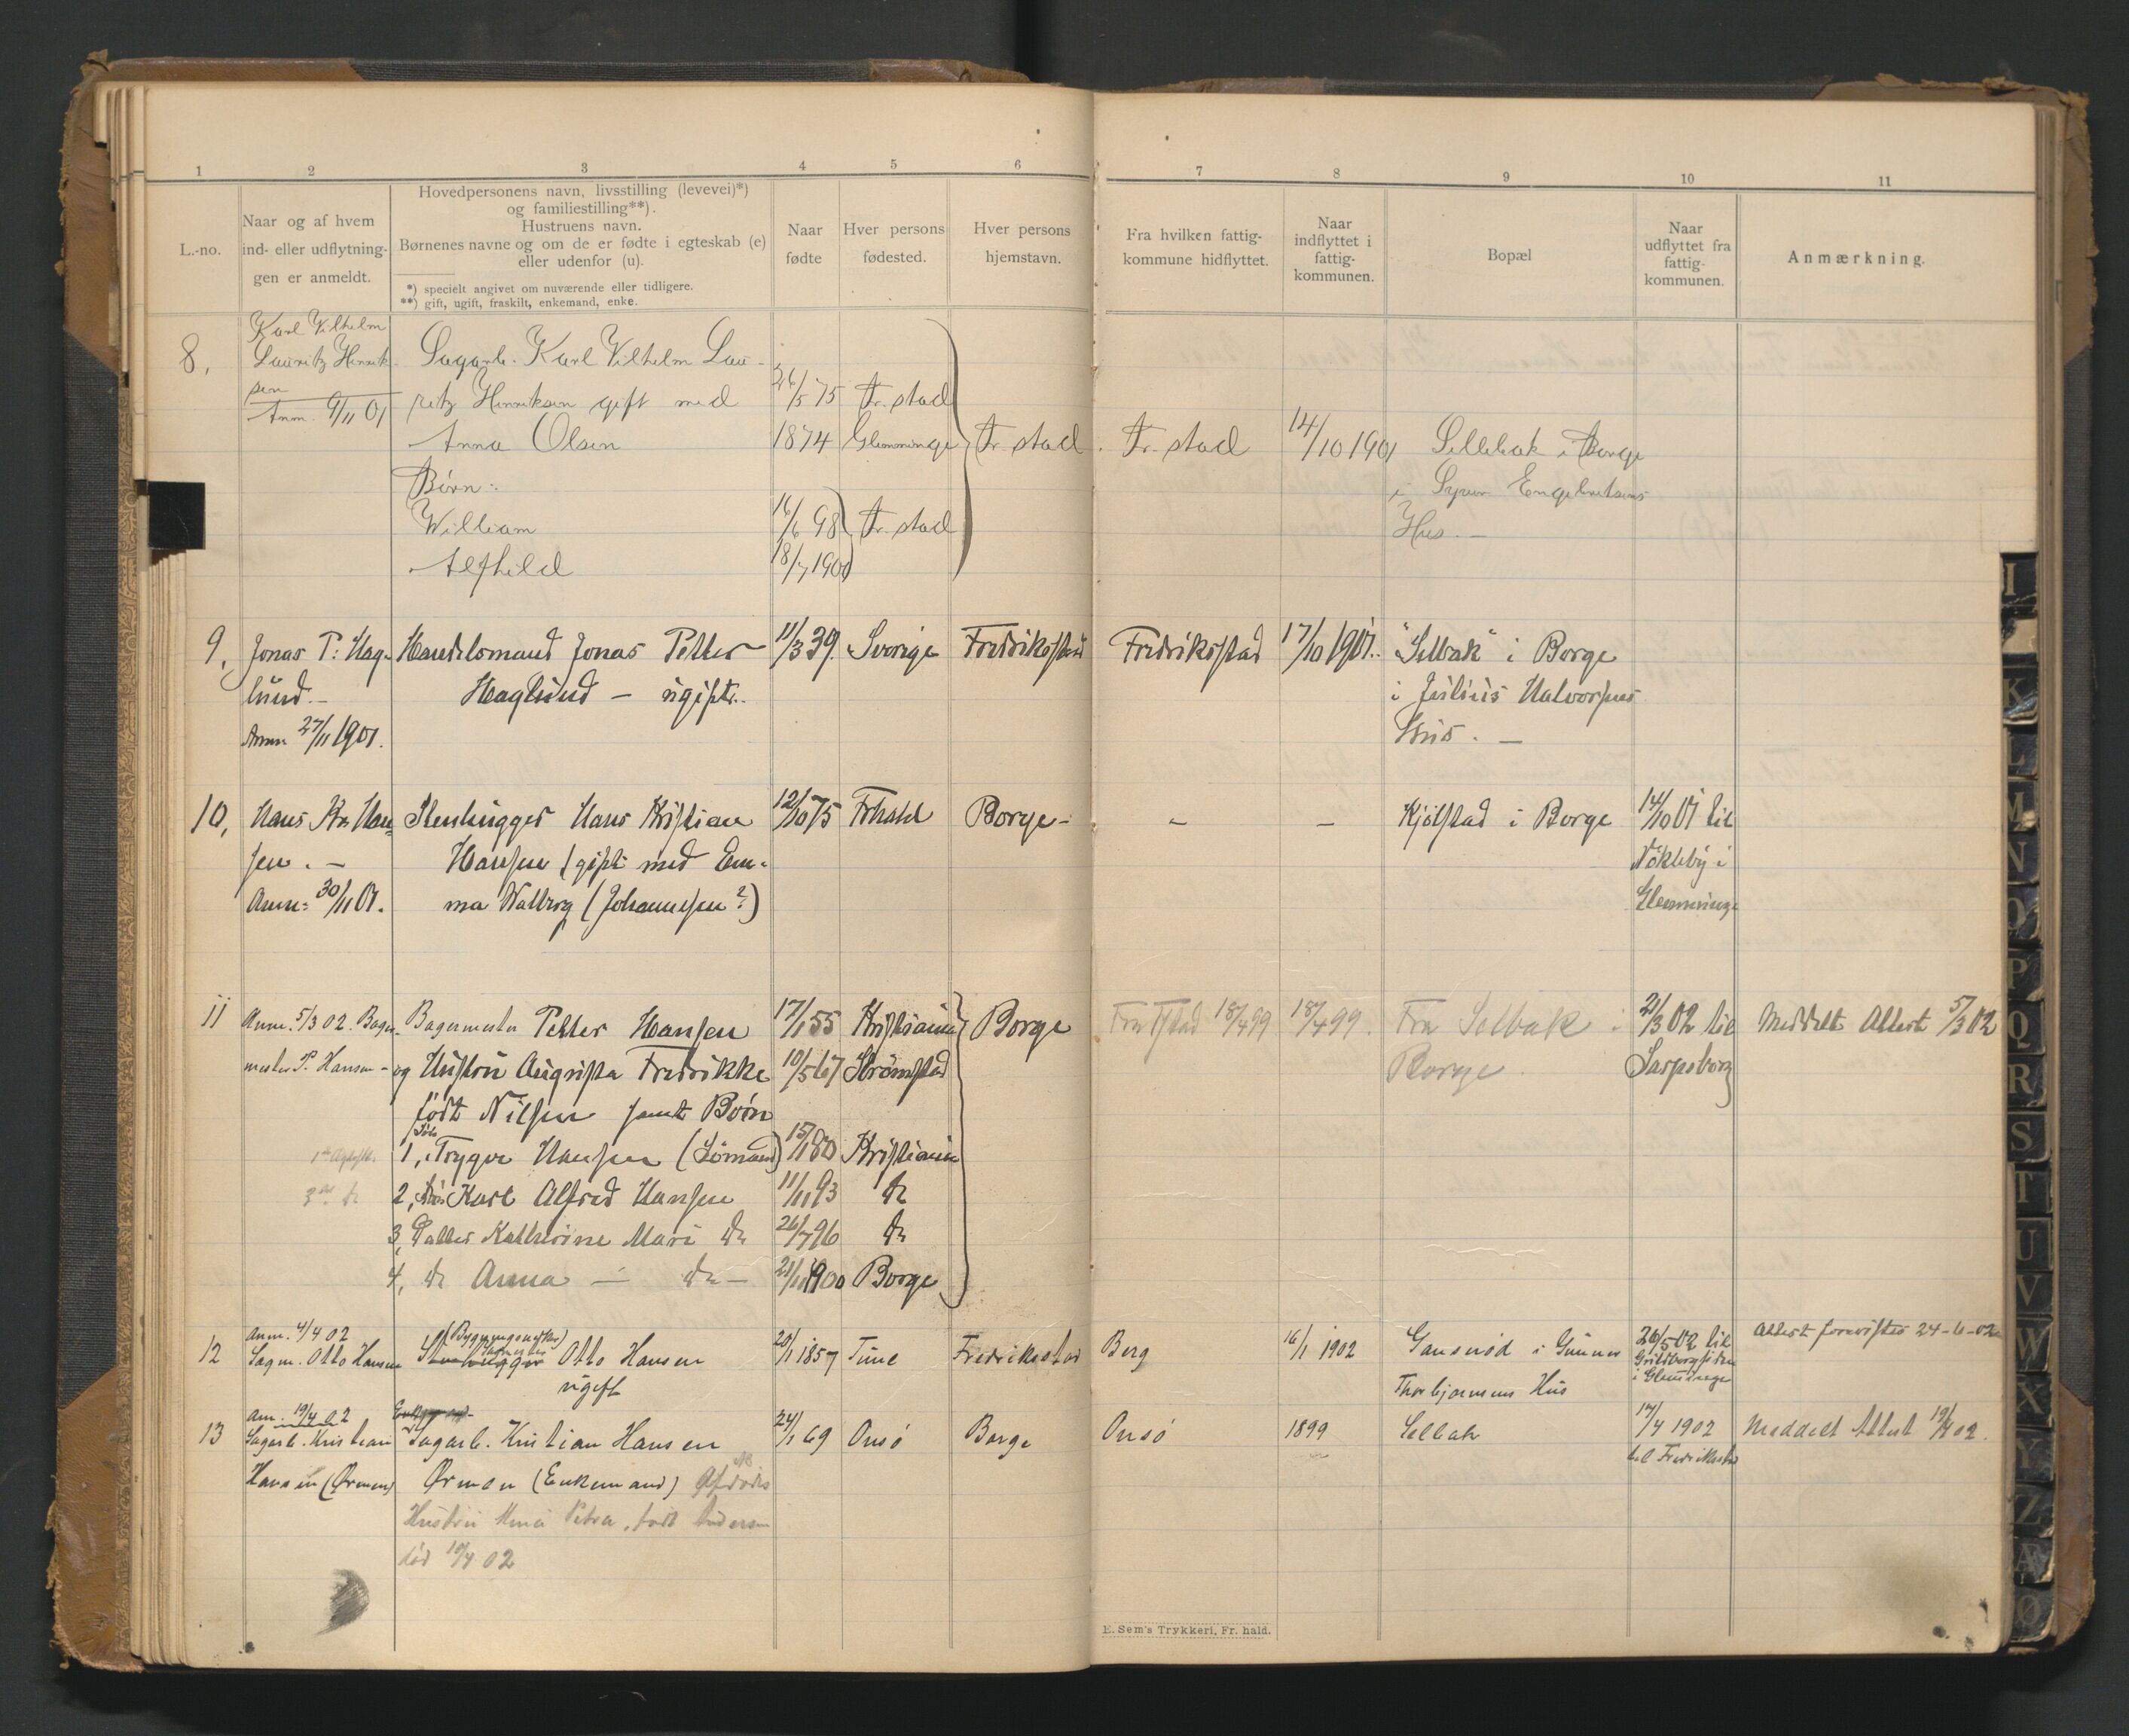 1 2 3 4 5 6 7 8 9 10 11
L.-no.
Naar og af hvem
ind- eller udflytnin-
gen er anmeldt.
Hovedpersonens navn, livsstilling (levevei)*)
og familiestilling**).
Hustruens navn.
Børnenes navne og om de er fødte i egteskab (e)
eller udenfor (u).
*) specielt angivet om nuværende eller tidligere.
**) gift, ugift, fraskilt, enkemand, enke.
Naar
fødte
Hver persons
fødested.
Hver persons
hjemstavn.
Fra hvilken fattig-
kommune hidflyttet.
Naar
indflyttet i
fattig-
kommunen.
Bopæl
Naar
udflyttet fra
fattig-
kommunen.
Anmærkning.
8,
Karl Vilhelm
Lauritz Henrik-
sen
Anm. 9/11 01
Sagarb. Karl Vilhelm Lau-
ritz Henriksen gift med
26/5 75 Fr.stad
Anna Olsen 1874 Glemminge Fr.stad Fr.stad 14/10 1901 Sellebak i Borge
Børn:
i Syver Engebretsens
William 16/6 98 Fr.stad
Hus. —
Alfhild 18/7 1900
9, Jonas P. Hag-
lund. —
Anm 27/11 1901.
Handelsmand Jonas Petter
Haglund — ugift.
11/3 39. Sverige Fredrikstad Fredrikstad 17/10 1901. "Selbak" i Borge
i Julius Halvorsens
Hus. —
10, Hans Kr. Han-
sen. —
Anm: 30/11 01.
Stenhugger Hans Kristian
Hansen (gift med Em-
ma Walborg (Johannesen?)
12/10 75 Frhald Borge - – – Kjølstad i Borge
14/10 01 til
Nøkleby i
Glemminge
11 Anm. 5/3 02. Bager-
mester P. Hansen -
Bagermester Petter Hansen 17/1 55 Kristiania Borge
og Hustru Augusta Fredrikke 10/5 67 Strømstad
født Nilsen samt Børn
1, Søn Trygve Hansen (Sømand) 15/1 80 Kristiania
2, Karl Alfred Hansen 11/11 93 do
3, Datter Kathrine Mari do 26/7 96 do
4, do Anna — do — 21/11 1900 Borge
Fra Fstad 18/4 99 18/4 99. Fra Selbak i
Borge.
21/3 02 til
Sarpsborg
Meddelt Attest 5/3 02
12 Anm. 4/4 02
Sagm. Otto Hansen
Stenhugger Otto Hansen
ugift
20/1 1857 Tune Fredrikstad Berg 16/1 1902
Gansrød i Gunnar
Thorbjørnsens Hus
26/5 02 til
i Glemminge
Attest forevistes 24-6-02
13 Am. 19/4 02
Sagarb. Kristian
Hansen (Ørmen)
Sagarb. Kristian Hansen
Ørmen (Enkemand) Afdøde
Hustru Petra, født Andersen
død 10/4 02
24/1 69 Onsø Borge Onsø 1899 Selbak
17/4 1902
til Fredrikstad
Meddelt Attest 19/4 02.
E. Sem's Trykkeri, Fr.hald.
I
K
L
M
N
O
P
Q
R
S
T
U
V
W
X
Y
Z
Æ
Ø